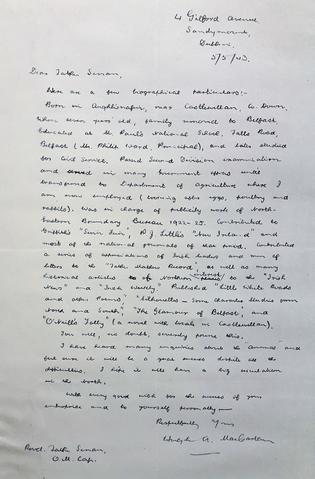 4 Gilford Avenue
Sandymount,
Dublin.
5/5/43.
Dear Father Senan,
Here are a few biographical particulars:-
Born in Aughlisnafin, near Castlewellan, Co. Down,
when seven years old, family removed to Belfast,
Educated at St. Paul's National School, Falls Road,
Belfast (Mr. Philip Ward, Principal), and later studied
for Civil Service. Passed Second Division examination
and served in many Government offices until
transferred to Department of Agriculture where I
am now employed ( eggs, poultry and
rabbits). Was in charge of publicity work of North-
Eastern Boundary Bureau 1922-25. Contributed to
Griffith's "Sinn Fein", R.J. Little's "New Ireland" and
most of the national journals of that period. Contributed
a series of appreciations of Irish leaders and men of
letters to the "Father Mathew Record", as well as many
historical articles of Northern interest to the "Irish
News" and "Irish Weekly". Published "Little White Roads
and other Poems", "Silhouettes - Some character studies from
North and South", "The Glamour of Belfast", and
"O'Neill's Folly" (a novel with locale in Castlewellan).
You will, no doubt, severely prune this.
I have heard many enquiries about the Annual and
feel sure it will be a great success despite all the
difficulties. I hope it will have a big circulation
in the North.
With every good wish for the success of your
enterprise and to yourself personally—
Respectfully Yours
Hugh A. MacCartan
Revd. Father Senan,
O.M. Cap.